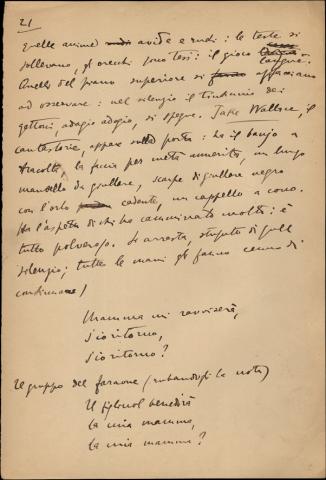 21
Quelle anime avide e rudi: le teste si
sollevano, gli orecchi sono tesi: il gioco langue.
Quelli del piano superiore si affacciano
ad osservare: nel silenzio il tintinnio dei
gettoni, adagio adagio, si spegne. Jake Wallace, il
cantastorie, appare sulla porta: ha il banjo a
tracolla, la faccia per metà annerita, un lungo
mantello da giullare, scarpe di giullare nero
con l'orlo cadente, un cappello a cono.
Ha l'aspetto di chi ha camminato molto: è
tutto polveroso. Si arresta, stupito di quel
silenzio; tutte le mani gli fanno cenno di
continuare /
Mamma mi ravviserà,
s'io ritorno,
s'io ritorno?
Il gruppo del faraone (rubandogli la nota)
Il figliuol benedirà
la mia mamma,
la mia mamma?